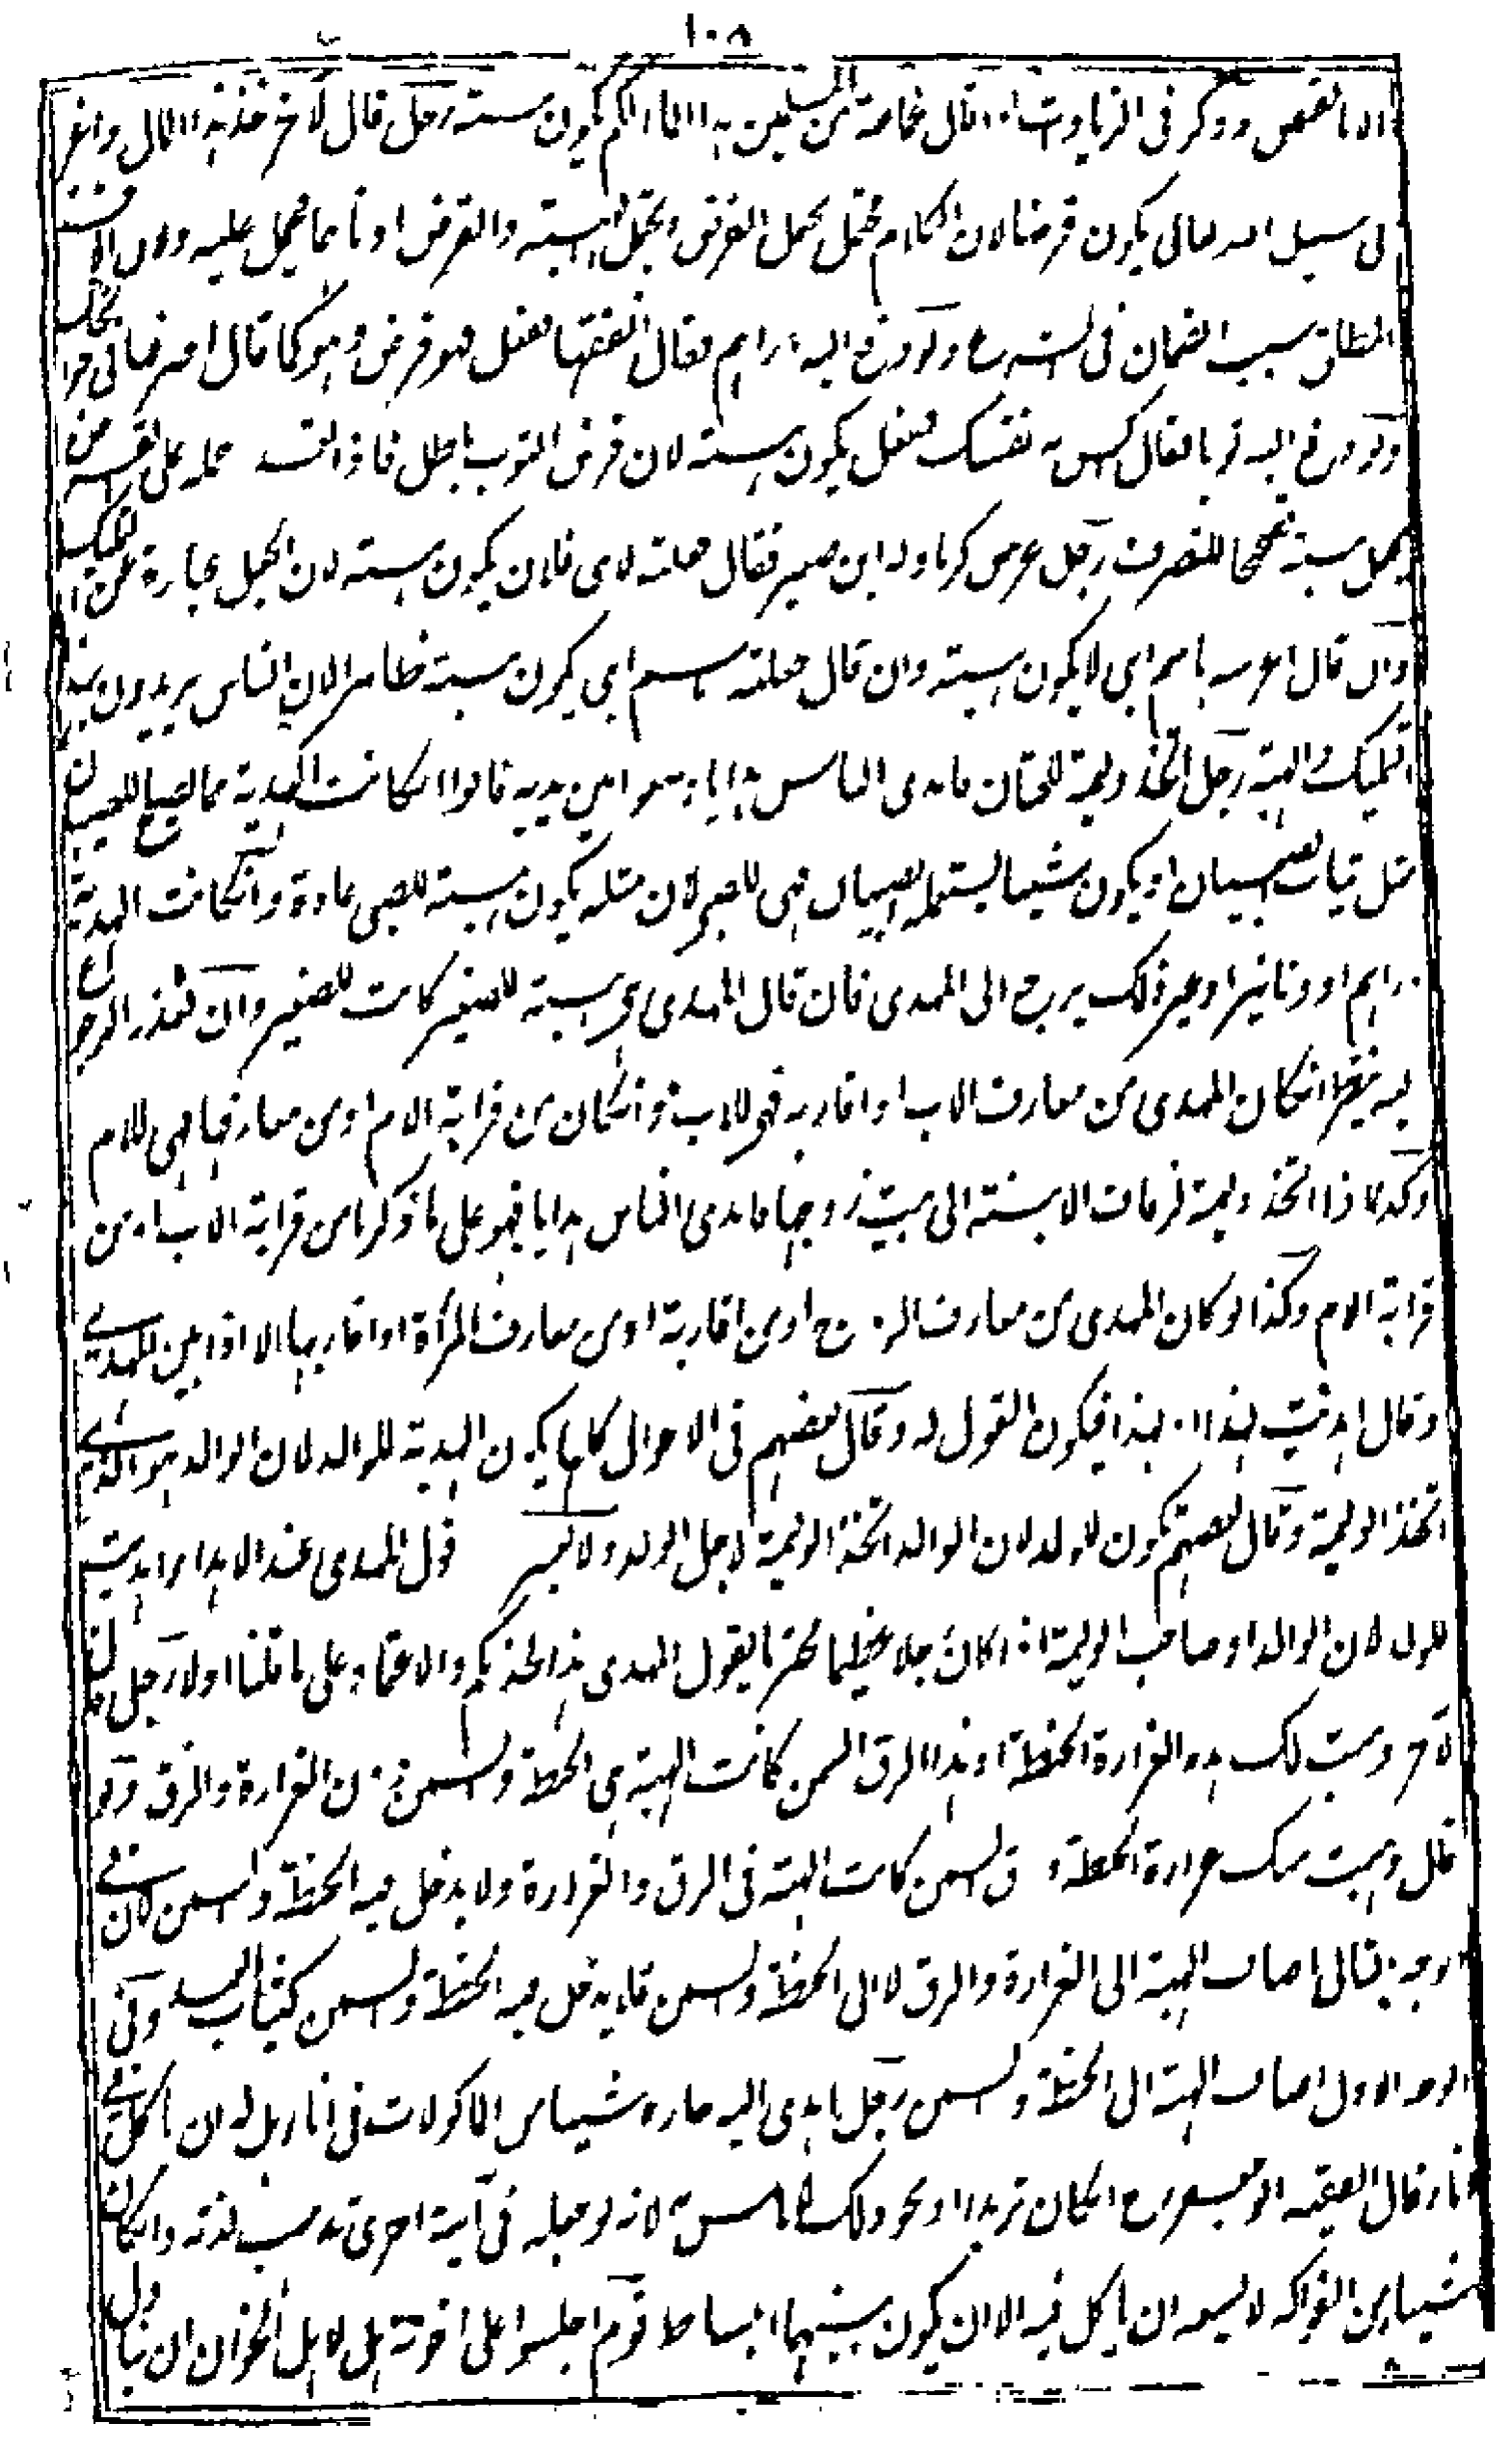 ١٠٥
الا ما نقص وذكر فى الزيادات قال عامة من المسلمين يكون هبة رجل قال لآخر خذ هذا المال واغز
فى سبيل الله تعالى يكون قرضا لان الكلام محتمل يحتمل القرض ويحتمل الهبة والقرض ادناهما فيحمل عليه ولان
المطلق سبب الضمان فى الشرع ولو دفع اليه دراهم فقال انفقها ففعل فهو قرض وهو كما قال اصرفها الى حوائجك
ولو دفع اليه ثوبا فقال اكس به نفسك ففعل يكون هبة لان قرض الثوب باطل حمله على القرض
يحمل هبة تصحيحا للتصرف رجل غرس كرما وله ابن صغير فقال جعلته لابنى فلان يكون هبة لان الجعل عبارة عن التمليك
وان قال اغرسه باسم ابنى لا يكون هبة وان قال جعلته باسم ابنى يكون هبة ظاهرا لان الناس يريدون بهذا
التمليك والهبة رجل اتخذ وليمة للختان فاهدى الناس هدايا ووضعوا بين يديه قالوا ان كانت الهدية مما يصلح للصبيان
مثل ثياب الصبيان او يكون شيئا يستعمله الصبيان فهى للصبى لان مثله يكون هبة للصبى عادة وان كانت الهدية
دراهم او دنانير او غير ذلك يرجع الى المهدى فان قال المهدى هى هبة للصغير كانت للصغير وان تعذر الرجوع
اليه ينظر ان كان المهدى من معارف الاب او اقاربه فهى للاب وان كان من قرابة الام او من معارفها فهى للام
وكذا اذا اتخذ وليمة لزفاف الابنة الى بيت زوجها فاهدى الناس هدايا فهو على ما ذكرنا من قرابة الاب او من
قرابة الام وكذا لو كان المهدى من معارف الزوج او من اقاربه او من معارف المرأة او اقاربها الا اذا بين المهدى
وقال اهديت لهذا او لهذا فيكون القول له وقال بعضهم فى الاحوال كلها يكون الهدية للوالد لان الوالد هو الذى
اتخذ الوليمة وقال بعضهم يكون للولد لان الوالد اتخذ الوليمة لاجل الولد ولا يعتبر قول المهدى عند الاهداء اهديت
للولد لان الوالد او صاحب الوليمة اذا كان رجلا عظيما محترما يقول المهدى هذا لخدمكم والاعتماد على ما قلنا اولا رجل قال
لآخر وهبت لك هذه الغرارة الحنطة او هذا الزق السمن كانت الهبة هى الحنطة والسمن دون الغرارة والزق ولو
قال وهبت منك غرارة الحنطة وزق السمن كانت الهبة فى الزق والغرارة ولا يدخل فيه الحنطة والسمن لان فى
الوجه الثانى اضاف الهبة الى الغرارة والزق لا الى الحنطة والسمن فلا يدخل فيه الحنطة والسمن كثياب العبد وفى
الوجه الاول اضاف الهبة الى الحنطة والسمن رجل اهدى اليه جاره شيئا من المأكولات فى اناء هل له ان يأكل فى
اناءه قال الفقيه ابو جعفر رح ان كان ثريدا او نحو ذلك لا بأس به لانه لو جعله فى آنية اخرى تذهب لذته وان كان
شيئا من الفواكه لا يسعه ان يأكل فيه الا ان يكون بينهما انبساط قوم اجلسوا على اخونة هل لاهل الخوان ان يناول